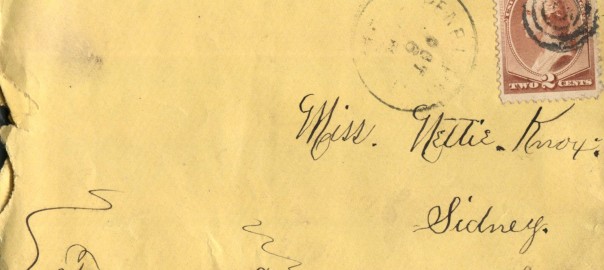 TWO 2 CENTS
Miss. Nettie. Knox.
Sidney.